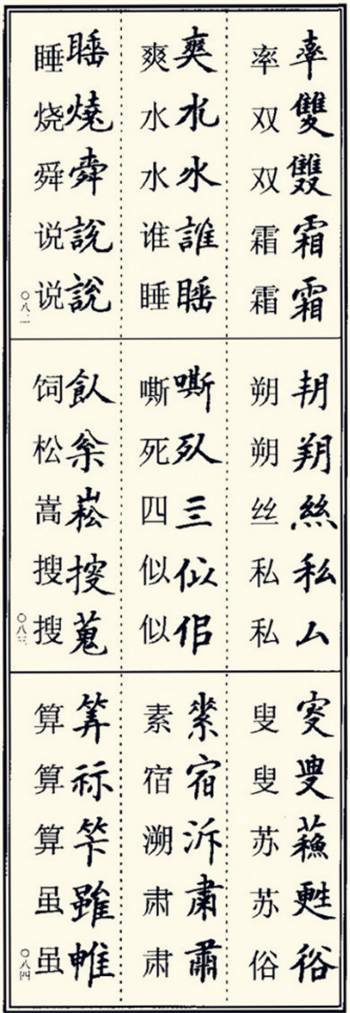 率雙雙霜霜
率双双霜霜
爽水氺誰睡
爽水水谁睡
睡燒舜說説
睡烧舜说说
〇八二
朔絲私厶
朔朔丝私私
嘶死亖似佀
嘶死四似似
飤枀崧搜蒐
饲松嵩搜搜
〇八三
叜叟蘇甦俗
叟叟苏苏俗
素宿泝肅肅
素宿溯肃肃
筭祘笇雖
算算算虽虽
〇八四